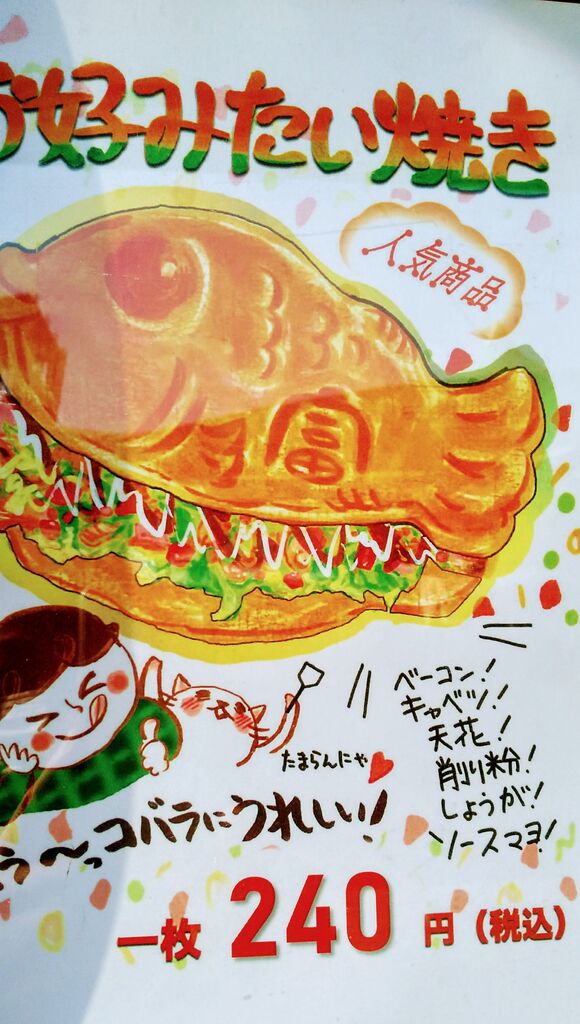 お好みたい焼き
人気商品
富
ベーコン!
キャベツ!
天花!
削り粉!
しょうが!
ソースマヨ!
たまらんにゃ
う〜っコバラにうれしい!
一枚 240 円(税込)